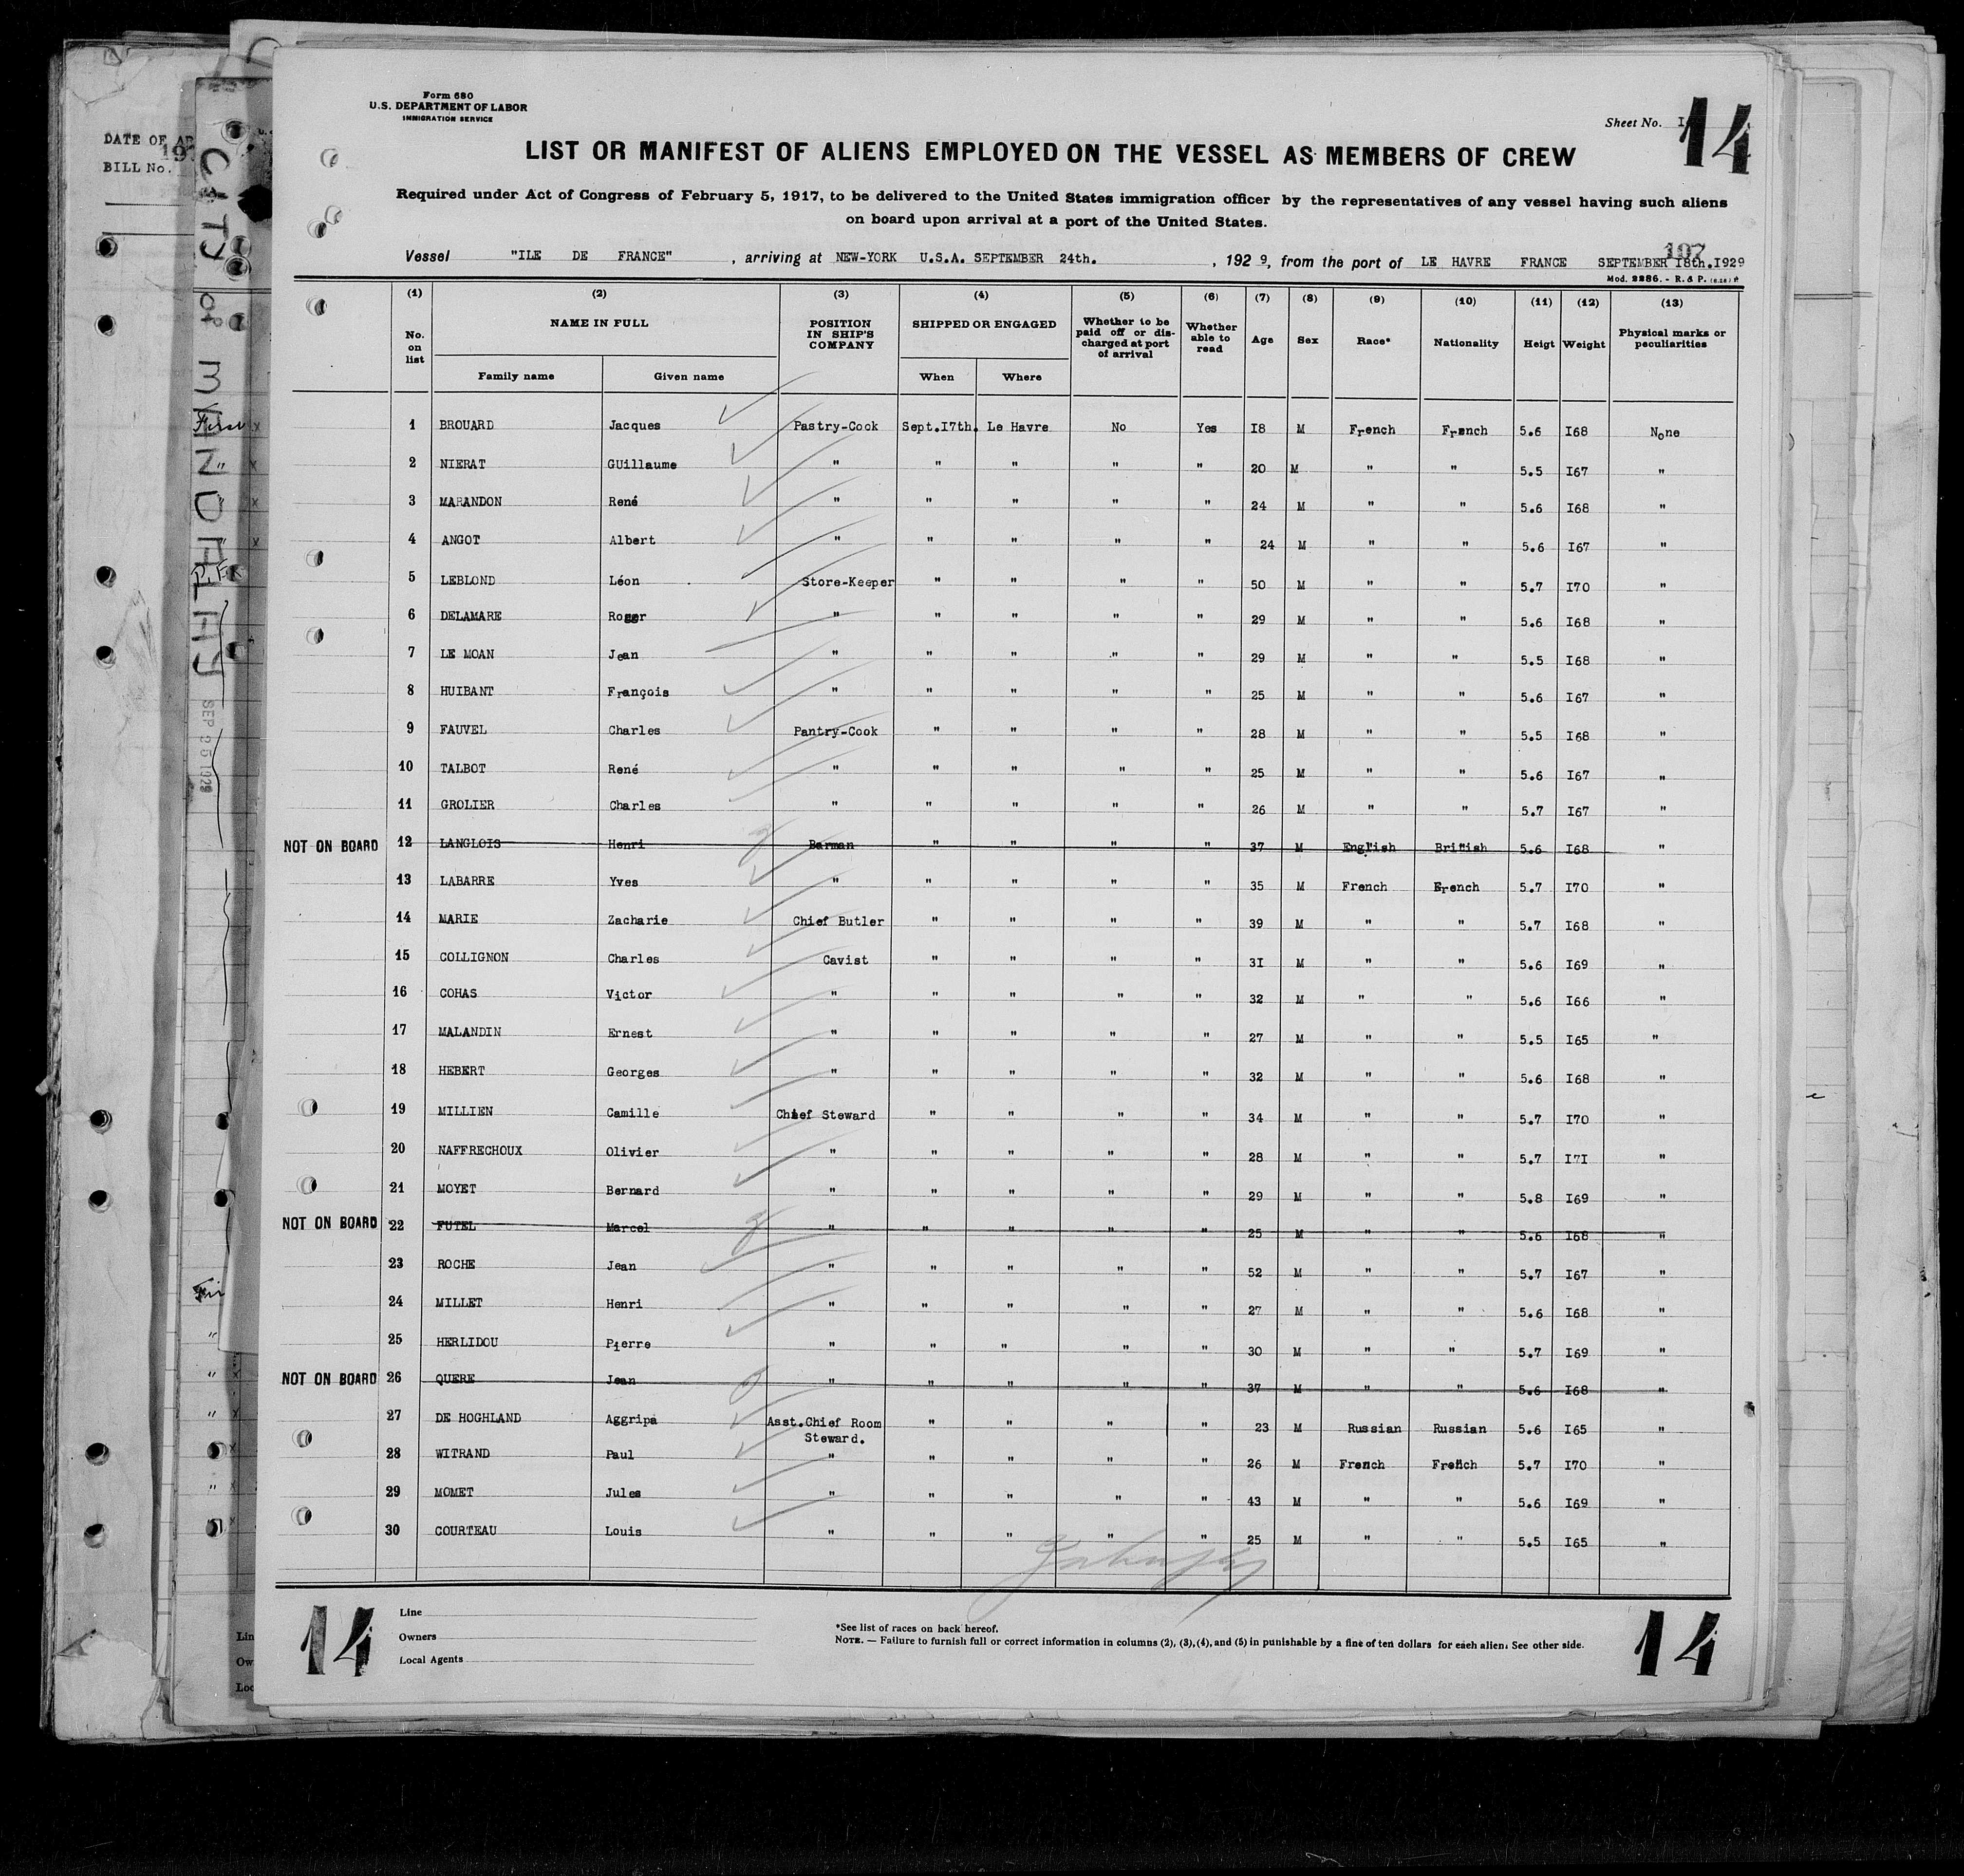 DATE OF AR
197
BILL No.
CITY of MANDALAY
SEP 25 1929
Form 680
U.S. DEPARTMENT OF LABOR
IMMIGRATION SERVICE
Sheet No.
14
LIST OR MANIFEST OF ALIENS EMPLOYED ON THE VESSEL AS MEMBERS OF CREW
Required under Act of Congress of February 5, 1917, to be delivered to the United States immigration officer by the representatives of any vessel having such aliens
on board upon arrival at a port of the United States.
197
Vessel "ILE DE FRANCE" , arriving at NEW-YORK U.S.A. SEPTEMBER 24th. , 192 9, from the port of LE HAVRE FRANCE SEPTEMBER I8th.I929
Mod. 2286. - R. & P.
(1) (2) (3) (4) (5) (6) (7) (8) (9) (10) (11) (12) (13)
No. on list NAME IN FULL POSITION IN SHIP'S COMPANY SHIPPED OR ENGAGED Whether to be paid off or discharged at port of arrival Whether able to read Age Sex Race* Nationality Heigt Weight Physical marks or peculiarities
Family name Given name When Where
1 BROUARD Jacques Pastry-Cook Sept.I7th. Le Havre No Yes I8 M French French 5.6 I68 None
2 NIERAT GUillaume " " " " " 20 M " " 5.5 I67 "
3 MARANDON René " " " " " 24 M " " 5.6 I68 "
4 ANGOT Albert " " " " " 24 M " " 5.6 I67 "
5 LEBLOND Léon Store-Keeper " " " " 50 M " " 5.7 I70 "
6 DELAMARE Roger " " " " " 29 M " " 5.6 I68 "
7 LE MOAN Jean " " " " " 29 M " " 5.5 I68 "
8 HUIBANT François " " " " " 25 M " " 5.6 I67 "
9 FAUVEL Charles Pantry-Cook " " " " 28 M " " 5.5 I68 "
10 TALBOT René " " " " " 25 M " " 5.6 I67 "
11 GROLIER Charles " " " " " 26 M " " 5.7 I67 "
NOT ON BOARD 12 LANGLOIS Henri Barman " " " " 37 M English British 5.6 I68 "
13 LABARRE Yves " " " " " 35 M French French 5.7 I70 "
14 MARIE Zacharie Chief Butler " " " " 39 M " " 5.7 I68 "
15 COLLIGNON Charles Cavist " " " " 3I M " " 5.6 I69 "
16 COHAS Victor " " " " " 32 M " " 5.6 I66 "
17 MALANDIN Ernest " " " " " 27 M " " 5.5 I65 "
18 HEBERT Georges " " " " " 32 M " " 5.6 I68 "
19 MILLIEN Camille Chief Steward " " " " 34 M " " 5.7 I70 "
20 NAFFRECHOUX Olivier " " " " " 28 M " " 5.7 I7I "
21 MOYET Bernard " " " " " 29 M " " 5.8 I69 "
NOT ON BOARD 22 FUTEL Marcel " " " " " 25 M " " 5.6 I68 "
23 ROCHE Jean " " " " " 52 M " " 5.7 I67 "
24 MILLET Henri " " " " " 27 M " " 5.6 I68 "
25 HERLIDOU Pierre " " " " " 30 M " " 5.7 I69 "
NOT ON BOARD 26 QUERE Jean " " " " " 37 M " " 5.6 I68 "
27 DE HOGHLAND Aggripa Asst.Chief Room Steward. " " " " 23 M Russian Russian 5.6 I65 "
28 WITRAND Paul " " " " " 26 M French French 5.7 I70 "
29 MOMET Jules " " " " " 43 M " " 5.6 I69 "
30 COURTEAU Louis " " " " " 25 M " " 5.5 I65 "
14
Line
Owners
Local Agents
*See list of races on back hereof.
NOTE. — Failure to furnish full or correct information in columns (2), (3), (4), and (5) in punishable by a fine of ten dollars for each alien. See other side.
14